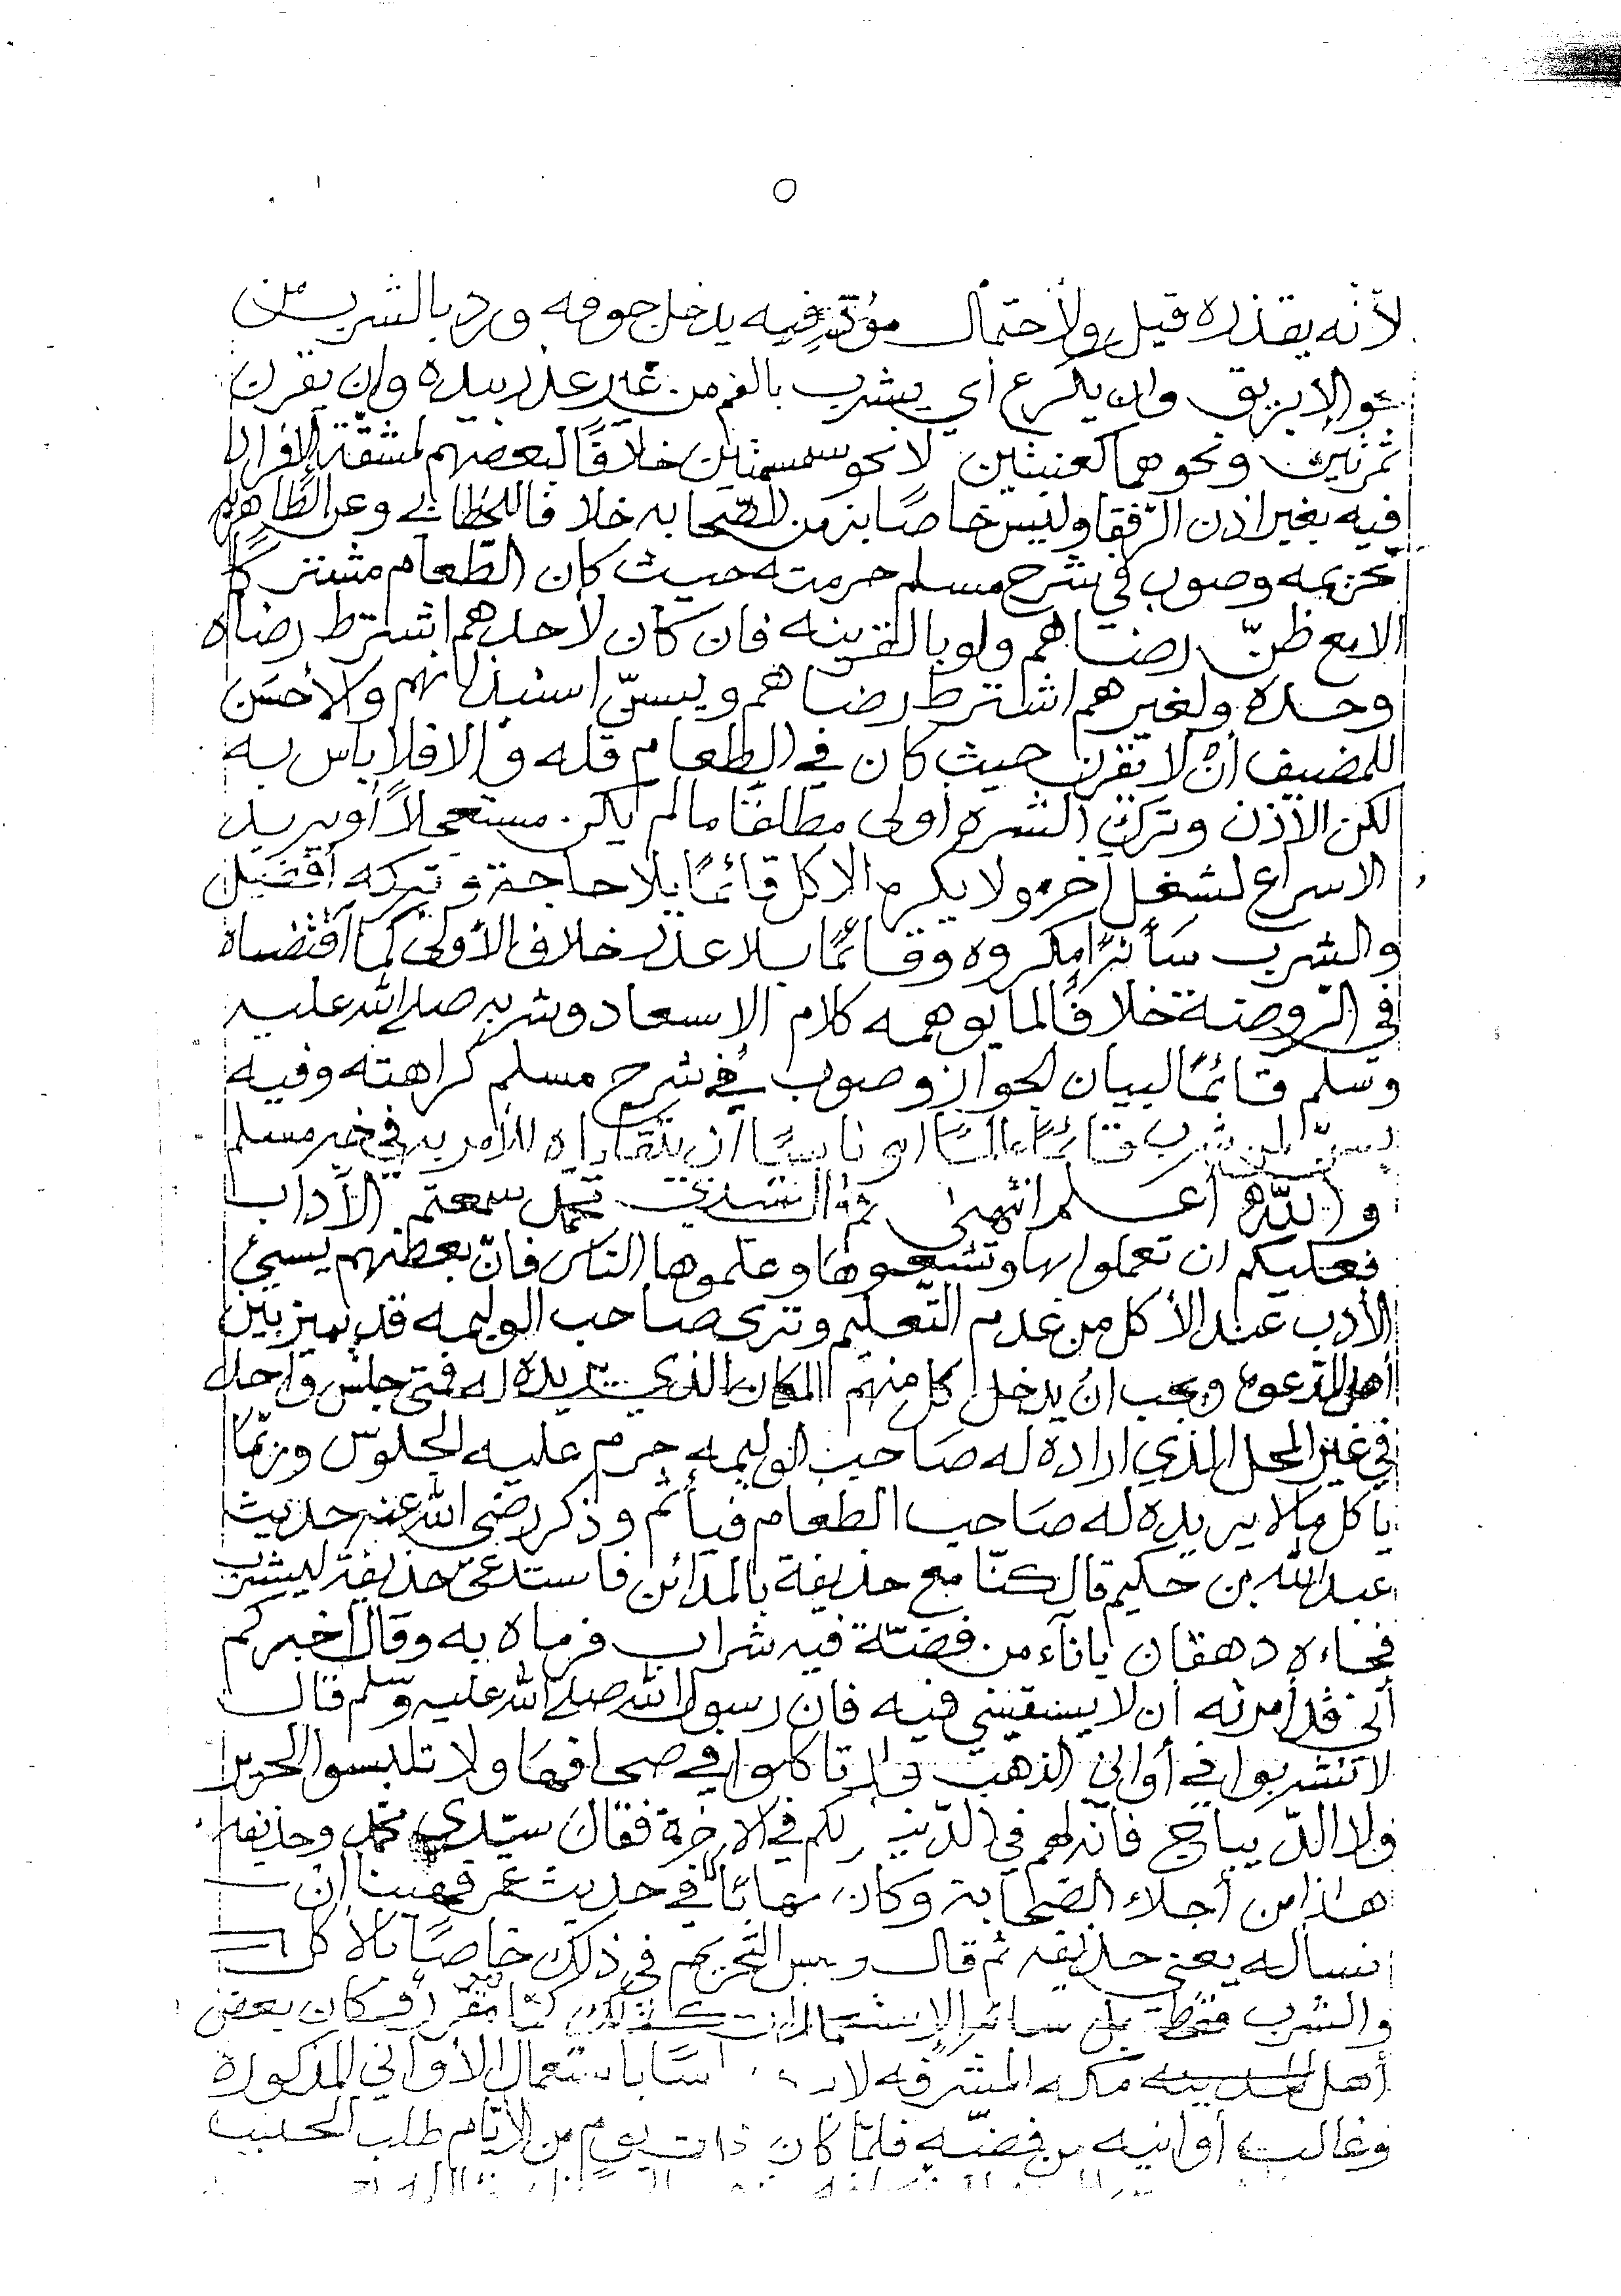 ٥
لأنه يقذره قيل ولأحتمال مؤذ فيه يدخل جوفه ورد بالشرب من
نحو الإبريق وان يكرع أي يشرب بالفم من غير عذر بيده وان يقرن
تمرتين ونحوهما كعنبتين لا نحو سمسمتين خلافًا لبعضهم لمشقة الإفراد
فيه بغير اذن الرّفقا وليس خاصًا بزمن الصّحابه خلافا للخطابي وعن الظّاهريه
تحريمه وصوب في شرح مسلم حرمته حيث كان الطّعام مشتركًا
الا مع ظنّ رضاهم ولو بالقرينه فان كان لأحدهم اشترط رضاه
وحده ولغيرهم اشترط رضاهم ويسنّ استيذانهم والأحسن
للمضيف أن لا يقرن حيث كان في الطعام قله والا فلا باس به
لكن الأذن وترك الشره أولى مطلقًا ما لم يكن مستعجلاً أو يريد
الاسراع لشغل آخر ولا يكره الاكل قائمًا بلا حاجة وتركه أفضل
والشرب سائرًا مكروه وقائمًا بلا عذر خلاف الأولى كما أقتضاه
في الرّوضة خلافًا لما يوهمه كلام الاسعاد وشربه صلى الله عليه
وسلم قائمًا لبيان الجواز وصوب في شرح مسلم كراهته وفيه
يسنّ لمن شرب قائمًا عالمًا او ناسيًا ان يتقاياه للأمر به في خبر مسلم
والله أعلم انتهى ثم قال سيدي محمد سمعتم الأداب
فعليكم ان تعملوا بها وتشيعوها وعلموها الناس فانّ بعضهم يسيئ
الأدب عند الأكل من عدم التّعليم وترى صاحب الوليمه قد يميز بين
أهل الدّعوه ويحب ان يدخل كل منهم المكان الذي يريده له فمتى جلس واحد
في غير المحل الذي اراده له صاحب الوليمه حرم عليه الجلوس وربّما
ياكل ما لا يريده له صاحب الطعام فيأثم وذكر رضي الله عنه حديث
عبد الله بن حكيم قال كنّا مع حذيفة بالمدائن فاستدعى حذيفة ليشرب
فجاءه دهقان بإنآء من فضّة فيه شراب فرماه به وقال أخبركم
أنّي قد أمرته أن لا يسقيني فيه فان رسول الله صلى الله عليه وسلّم قال
لا تشربوا في أواني الذهب ولا تاكلوا في صحافها ولا تلبسوا الحرير
ولا الدّيباج فانه لهم في الدّنيا ولكم في الأخرة فقال سيّدي محمد وحذيفه
هذا من أجلاء الصّحابة وكان مهابًا في حديث عمر فهبنا ان
نساله يعني حذيفه ثم قال وليس التّحريم في ذلك خاصًا بالأكل
والشرب فقط بل سائر الإستعمالات كذلك كما تقرّر وكان بعض
أهل مكه المشرفه باستعمال الأواني المذكورة
وغالب أوانيه من فضّه فلمّا كان ذات يوم من الأيّام طلب الحليب